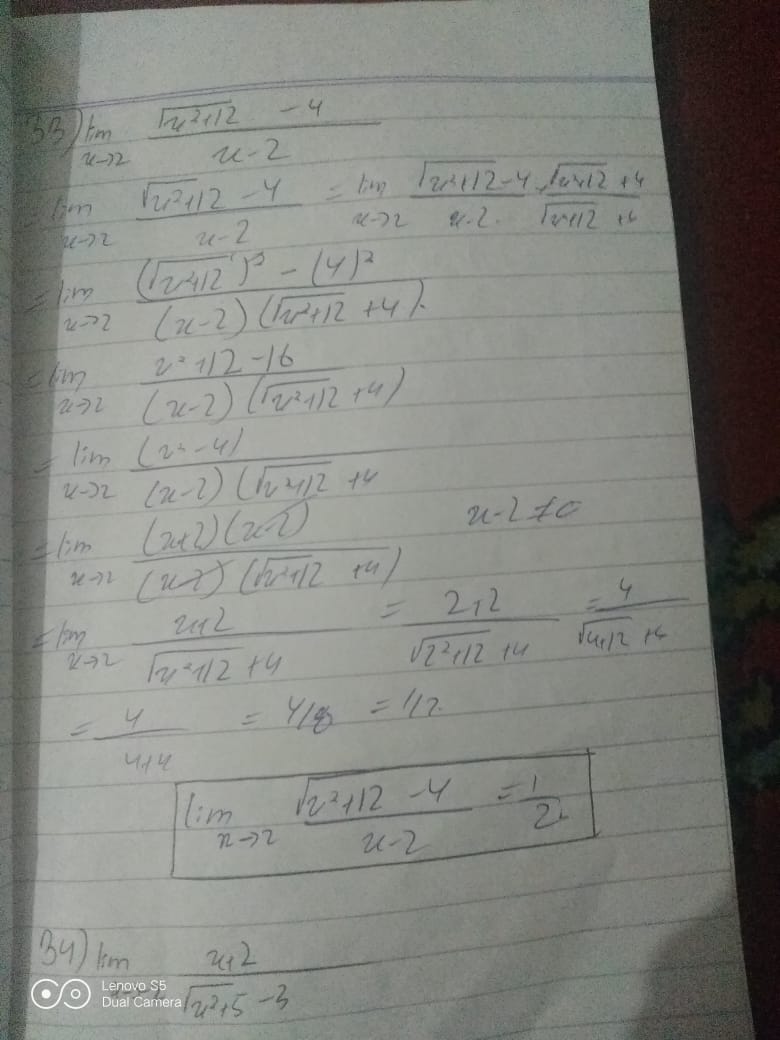 33) lim x→2 (√(x²+12) - 4)/(x-2)
= lim x→2 (√(x²+12) - 4)/(x-2) = lim x→2 (√(x²+12) - 4)/(x-2) · (√(x²+12) + 4)/(√(x²+12) + 4)
= lim x→2 ((√(x²+12))² - (4)²)/((x-2)(√(x²+12) + 4))
= lim x→2 (x²+12-16)/((x-2)(√(x²+12) + 4))
= lim x→2 (x²-4)/((x-2)(√(x²+12) + 4
= lim x→2 ((x+2)(x-2))/((x-2)(√(x²+12) + 4)) x-2≠0
= lim x→2 (x+2)/(√(x²+12) + 4) = (2+2)/(√(2²+12) + 4) = 4/(√(4+12) + 4)
= 4/(4+4) = 4/8 = 1/2
lim x→2 (√(x²+12) - 4)/(x-2) = 1/2
34) lim (x+2)/(√(x²+5) - 3)
Lenovo S5
Dual Camera